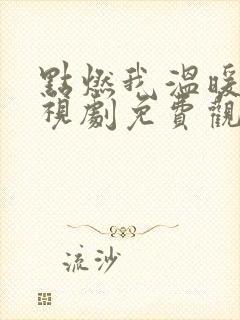 點燃我溫暖
視劇免費觀
流沙